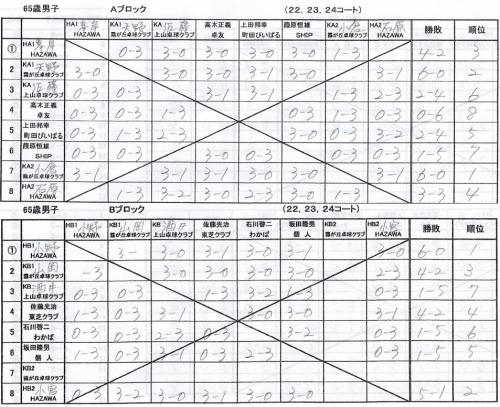 65歳男子 Aブロック (22, 23, 24コート)
HA1 KA1 天野 KA 佐藤 高木正義 上田邦幸 段原恒雄 KA2 小倉 HA2 石原 勝敗 順位
HAZAWA 霞が丘卓球クラブ 上山卓球クラブ 卓友 町田びいばる SHIP 霞が丘卓球クラブ HAZAWA
① HA1 HAZAWA 0-3 3-0 3-0 3-0 3-0 1-3 4-2 3
2 KA1 天野 霞が丘卓球クラブ 3-0 3-0 3-0 3-1 3-0 3-1 6-0
3 KA 佐藤 上山卓球クラブ 0-3 0-3 3-1 3-1 1-3 2-3 2-4 6
4 高木正義 卓友 0-3 0-3 1-3 0-3 0-3 0-6 8
5 上田邦幸 町田びいばる 0-3 1-3 3-0 0-3 3-1 2-4 5
6 段原恒雄 SHIP 0-3 0-3 3-0 0-3 0-3 1-5
7 KA2 小倉 霞が丘卓球クラブ 3-1 3-1 3-1 3-0 3-0
8 HA2 石原 HAZAWA 1-3 3-2 3-0 3-0 1-3 3-3 4
65歳男子 Bブロック (22, 23, 24コート)
HB1 小野 KB1 山岡 KB 酒井 佐藤先治 石川啓二 坂田睦男 KB2 HB2 小宮 勝敗 順位
HAZAWA 霞が丘卓球クラブ 上山卓球クラブ 東芝クラブ わかば 個人 霞が丘卓球クラブ HAZAWA
① HB1 小野 HAZAWA 3-0 3-1 3-0 3-1 3-0 6-0
2 KB1 山岡 霞が丘卓球クラブ -3 3-0 3-0 3-0 3-0 2-3 4-2 3
3 KB 酒井 上山卓球クラブ 0-3 0-3 1-3 3-2 1-3 0-3 1-5 7
4 佐藤先治 東芝クラブ 1-3 0-3 3-1 3-0 3-0 3-1 4-2 4
5 石川啓二 わかば 0-3 0-3 2-3 0-3 3-2 0-3 1-5 6
6 坂田睦男 個人 1-3 0-3 3-1 0-3 2-3 0-3 1-5 5
7 KB2 霞が丘卓球クラブ
8 HB2 小宮 HAZAWA 0-3 3-2 3-0 3-1 3-0 3-0 5-1 2